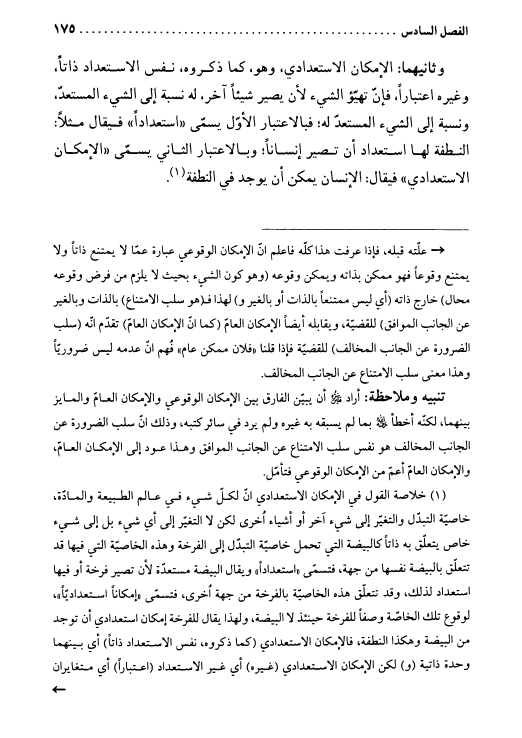 الفصل السادس ........................................................ ١٧٥
وثانيهما: الإمكان الاستعدادي، وهو، كما ذكروه، نفس الاستعداد ذاتاً،
وغيره اعتباراً، فإنّ تهيّؤ الشيء لأن يصير شيئاً آخر، له نسبة إلى الشيء المستعدّ،
ونسبة إلى الشيء المستعدّ له؛ فبالاعتبار الأوّل يسمّى «استعداداً» فيقال مثلاً:
النطفة لها استعداد أن تصير إنساناً؛ وبالاعتبار الثاني يسمّى «الإمكان
الاستعدادي» فيقال: الإنسان يمكن أن يوجد في النطفة(١).
→ علّته قبله، فإذا عرفت هذا كلّه فاعلم انّ الإمكان الوقوعي عبارة عمّا لا يمتنع ذاتاً ولا
يمتنع وقوعاً فهو ممكن بذاته ويمكن وقوعه (وهو كون الشيء بحيث لا يلزم من فرض وقوعه
محال) خارج ذاته (أي ليس ممتنعاً بالذات أو بالغير و) لهذا فـ(هو سلب الامتناع) بالذات وبالغير
عن الجانب الموافق) للقضيّة، ويقابله أيضاً الإمكان العامّ (كما انّ الإمكان العامّ) تقدّم انّه (سلب
الضرورة عن الجانب المخالف) للقضية فإذا قلنا «فلان ممكن عام» فُهم انّ عدمه ليس ضروريّاً
وهذا معنى سلب الامتناع عن الجانب المخالف.
تنبيه وملاحظة: أراد ﷺ أن يبيّن الفارق بين الإمكان الوقوعي والإمكان العامّ والمايز
بينهما، لكنّه أخطأ بما لم يسبقه به غيره ولم يرد في سائر كتبه، وذلك انّ سلب الضرورة عن
الجانب المخالف هو نفس سلب الامتناع عن الجانب الموافق وهذا عود إلى الإمكان العامّ،
والإمكان العامّ أعمّ من الإمكان الوقوعي فتأمّل.
(١) خلاصة القول في الإمكان الاستعدادي انّ لكلّ شيء في عالم الطبيعة والمادّة،
خاصيّة التبدّل والتغيّر إلى شيء آخر أو أشياء أخرى لكن لا التغيّر إلى أي شيء بل إلى شيء
خاص يتعلّق به ذاتاً كالبيضة التي تحمل خاصيّة التبدّل إلى الفرخة وهذه الخاصيّة التي فيها قد
تتعلّق بالبيضة نفسها من جهة، فتسمّى «استعداداً» ويقال البيضة مستعدّة لأن تصير فرخة أو فيها
استعداد لذلك، وقد تتعلّق هذه الخاصيّة بالفرخة من جهة أخرى، فتسمّى «إمكاناً استعداديّاً»،
لوقوع تلك الخاصّة وصفاً للفرخة حينئذ لا البيضة، ولهذا يقال للفرخة إمكان استعدادي أن توجد
من البيضة وهكذا النطفة، فالإمكان الاستعدادي (كما ذكروه، نفس الاستعداد ذاتاً) أي بينهما
وحدة ذاتية (و) لكن الإمكان الاستعدادي (غيره) أي غير الاستعداد (اعتباراً) أي متغايران
←